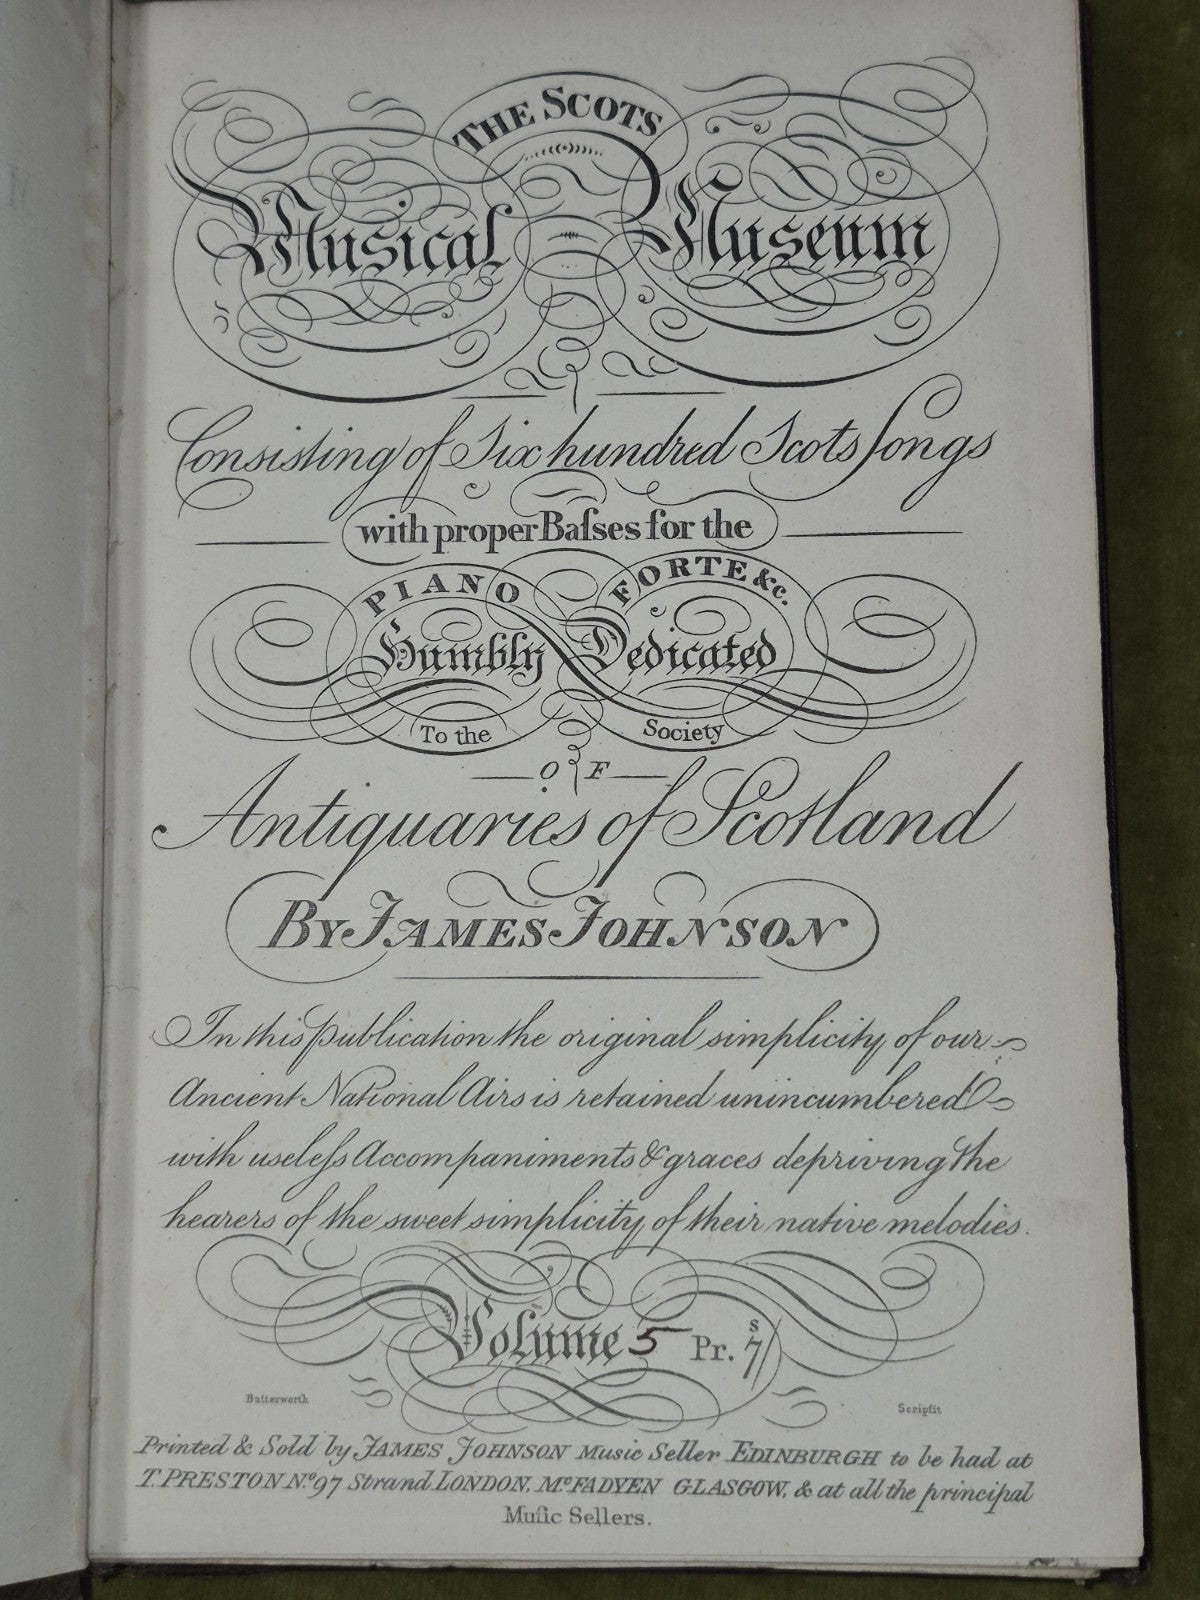 THE SCOTS
Musical Museum
Consisting of Six hundred Scots Songs
with proper Baſses for the
PIANO FORTE &c.
Humbly Dedicated
To the Society
OF
Antiquaries of Scotland
By JAMES JOHNSON
In this publication the original simplicity of our
Ancient National Airs is retained unincumbered
with useleſs Accompaniments & graces depriving the
hearers of the sweet simplicity of their native melodies.
Volume 5 Pr. 7s/
Butterworth Scripſit
Printed & Sold by JAMES JOHNSON Music Seller EDINBURGH to be had at
T. PRESTON No. 97 Strand LONDON. Mc.FADYEN GLASGOW, & at all the principal
Muſic Sellers.